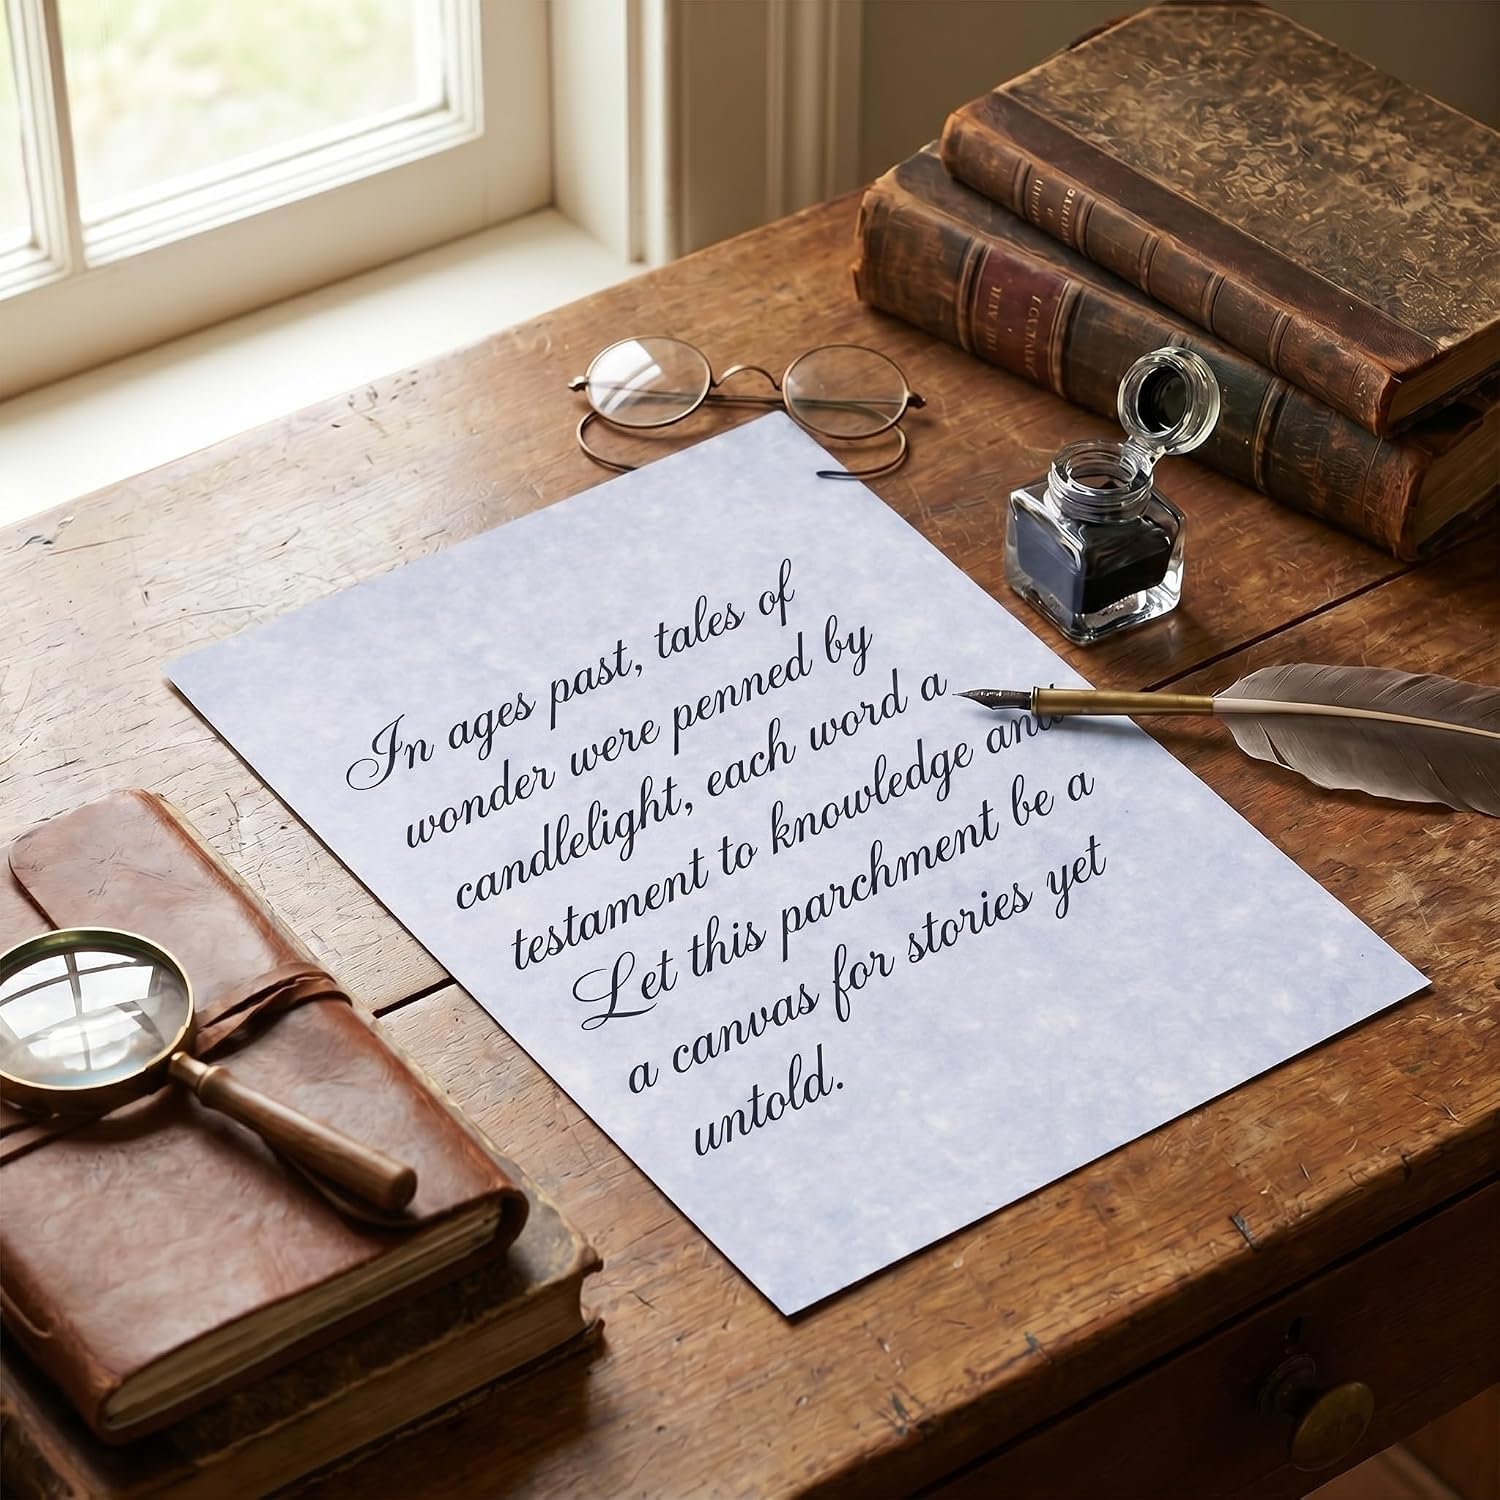 In ages past, tales of
wonder were penned by
candlelight, each word a
testament to knowledge and
Let this parchment be a
a canvas for stories yet
untold.